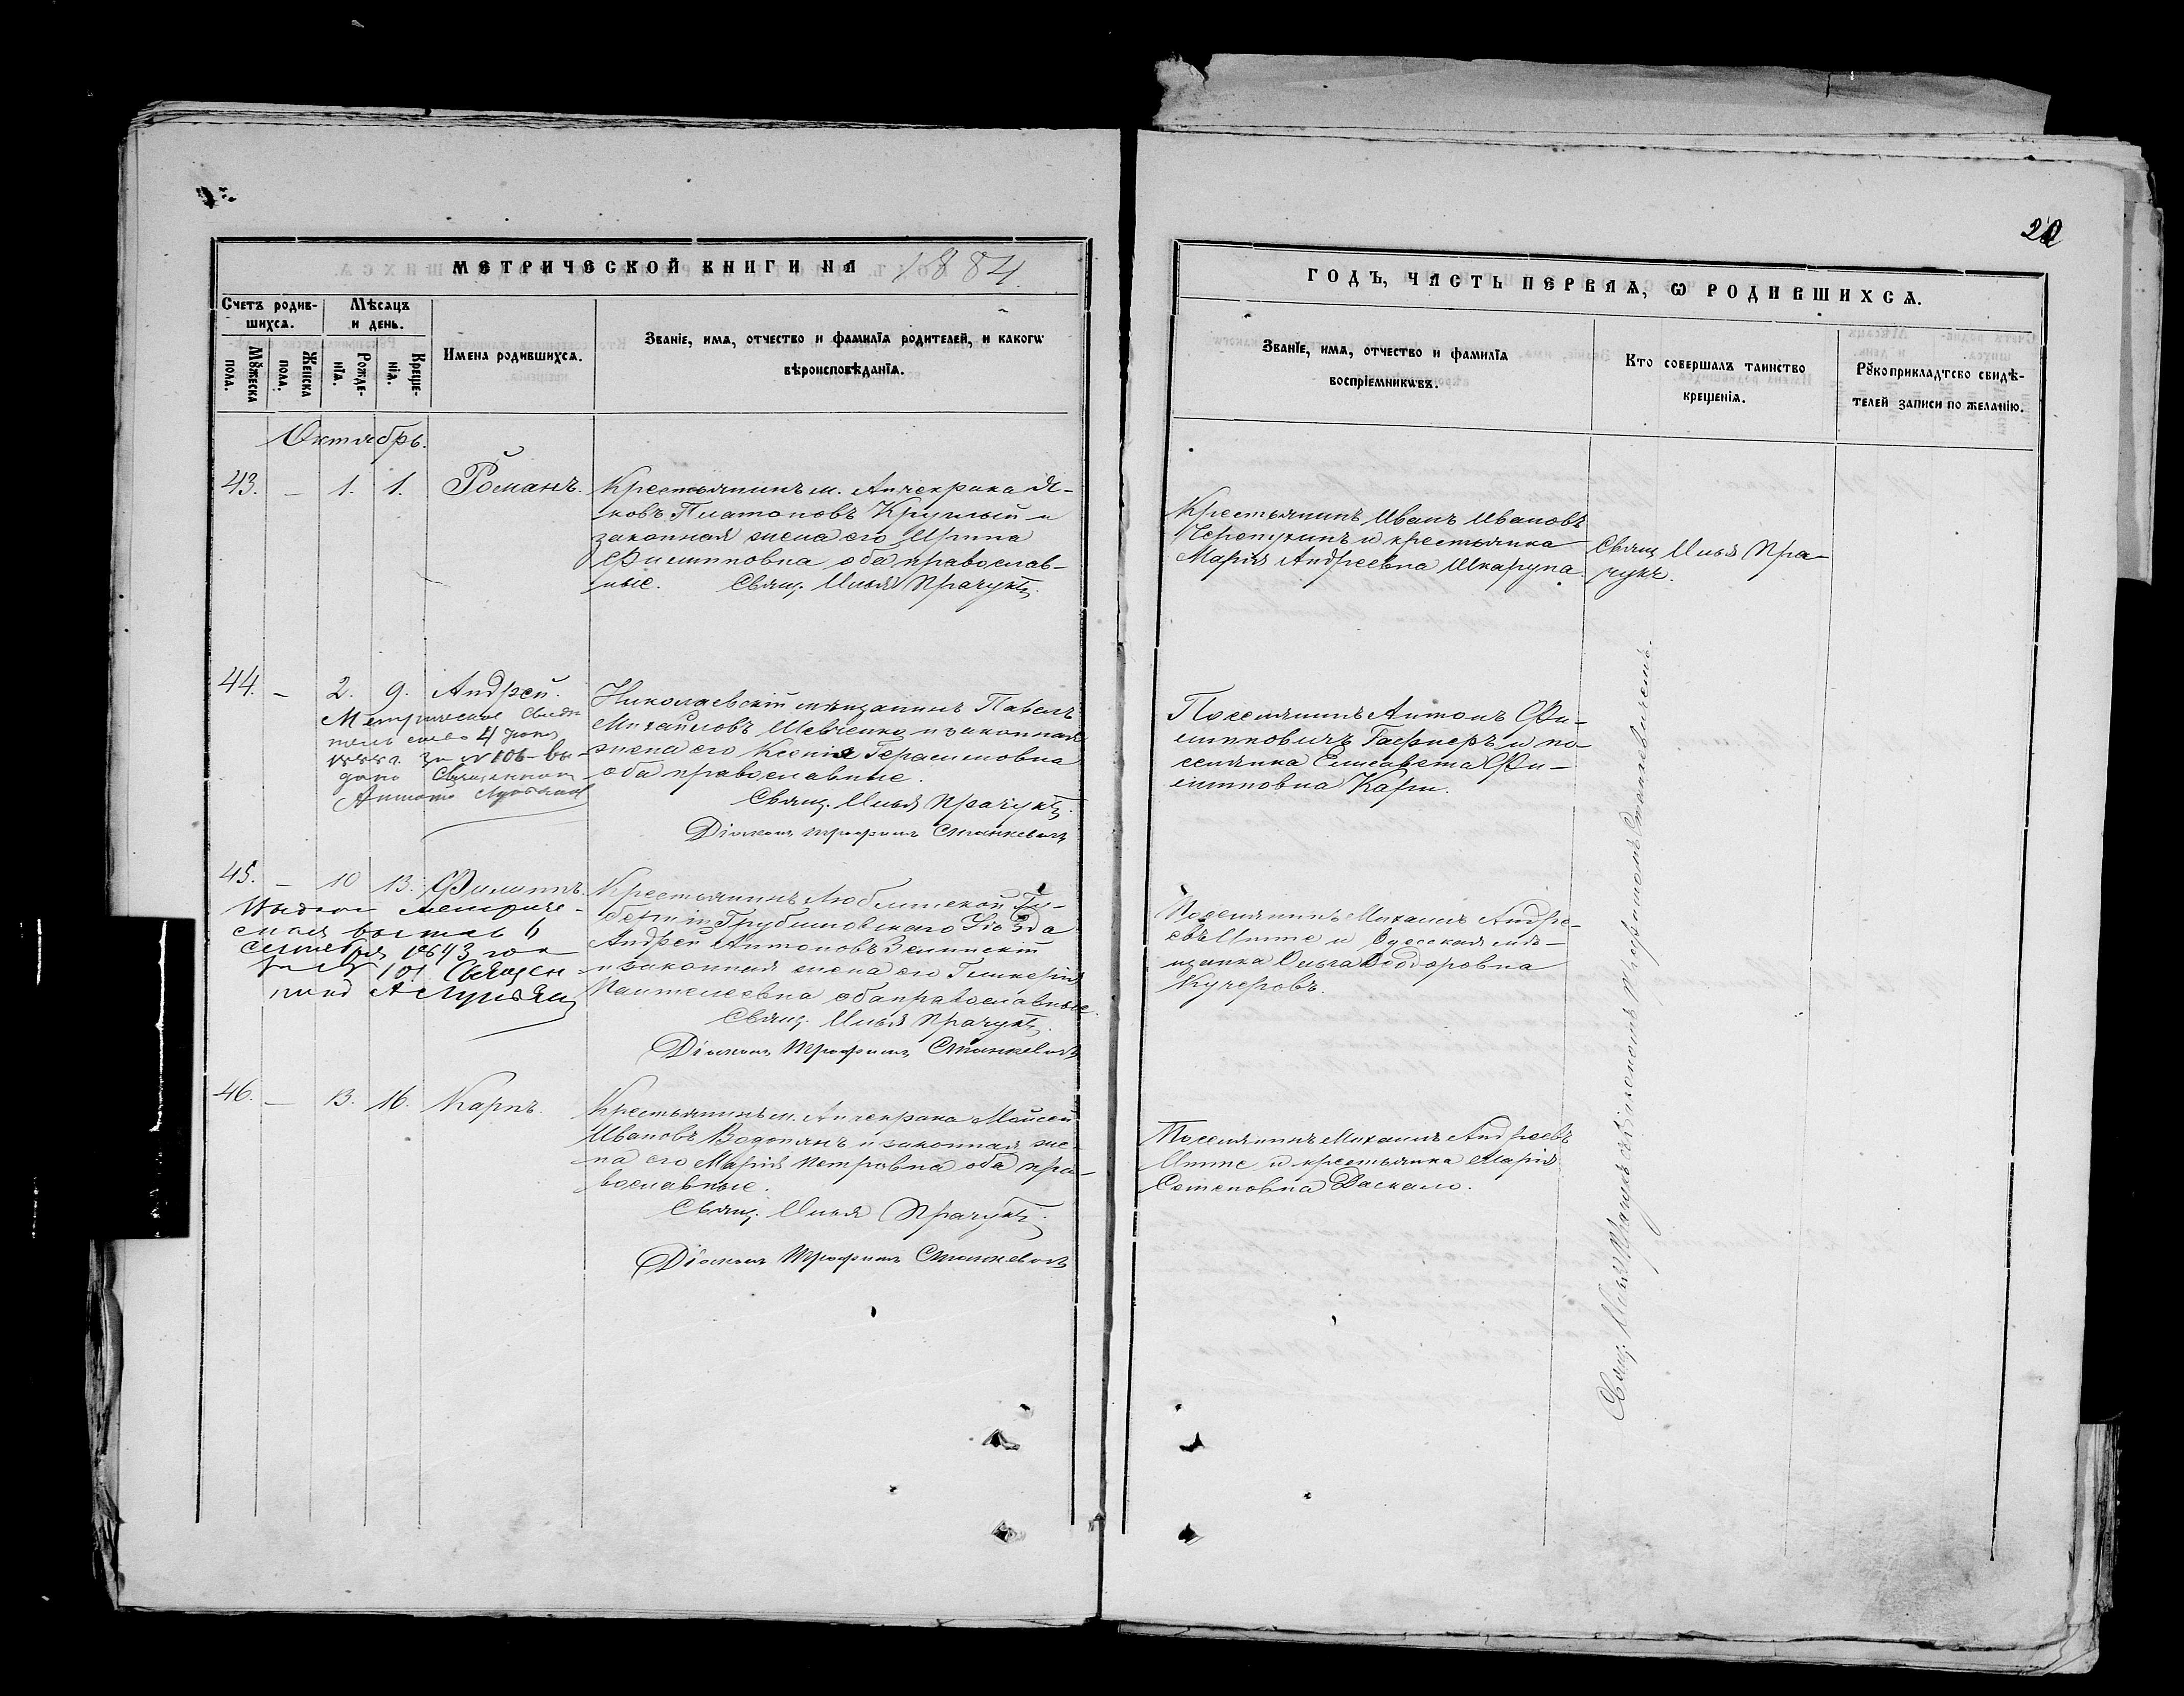 МЕТРИЧЕСКОЙ КНИГИ НА 1884
Счетъ родив-
шихся.
Мѣсяцъ
и день.
Имена родившихся.
Званіе, имя, отчество и фамилія родителей, и какогѡ
вѣроисповѣданія.
Мꙋжеска
пола.
Женска
пола.
Рожде-
нія.
Креще-
нія.
Октябрь.
43. — 1. 1. Романъ.
Крестьянинъ м. Анчекрака Я-
ковъ Платоновъ Круглый и
законная жена его Ирина
Филипповна оба православ-
ные. Свящ. Илья Прачукъ.
44. — 2. 9. Андрей.
Метрическое Свидѣ
4
за № 106 вы-
дано Священник
Николаевскій мѣщанинъ Павелъ
Михайловъ Шевченко и законная
жена его Ксенія Герасимовна
оба православные.
Свящ. Илья Прачукъ.
Діаконъ Трофимъ Станкевичъ
45. — 10 13. Филиппъ.
Выдана метриче-
ская выпись 6
сентября года
за № 101 Священ
ник А
Крестьянинъ Люблинской Гу-
берніи Грубешовскаго Уѣзда
Андрей Антоновъ Зелинскій
и законная жена его Гликерія
Пантелеевна оба православные.
Свящ. Илья Прачукъ.
Діаконъ Трофимъ Станкевичъ
46. — 13. 16. Карпъ.
Крестьянинъ м. Анчекрака Моисей
Ивановъ Водопянъ и законная же-
на его Марія Петровна оба пра-
вославные.
Свящ. Илья Прачукъ.
Діаконъ Трофимъ Станкевичъ
ГОДЪ, ЧАСТЬ ПЕРВАЯ, Ѡ РОДИВШИХСЯ.
Званіе, имя, отчество и фамилія
воспріемникѡвъ.
Кто совершалъ таинство
крещенія.
Рꙋкоприкладтсво свидѣ-
телей записи по желанію.
Крестьянинъ Иванъ Ивановъ
и крестьянка
Марія Андреевна Шкарупа.
Свящ Илья Пра-
чукъ.
Поселянинъ Антонъ Фи-
липповичъ Гафнеръ и по-
селянка Елисавета Фи-
липповна Кари.
Поселянинъ Михаилъ Андре-
евъ и Одесская мѣ-
щанка Ольга Ѳеодоровна
Кучеровъ.
Поселянинъ Михаилъ Андреевъ
и крестьянка Марія
Стеновна Даскало.
Свящ. Илья Прачукъ съ Діакономъ Трофимомъ Станкевичемъ.